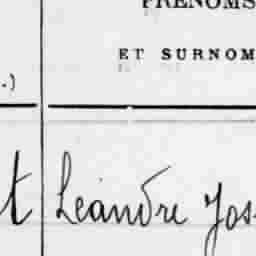 PRÉNOMS
ET SURNOM
.)
t Léandre Jos